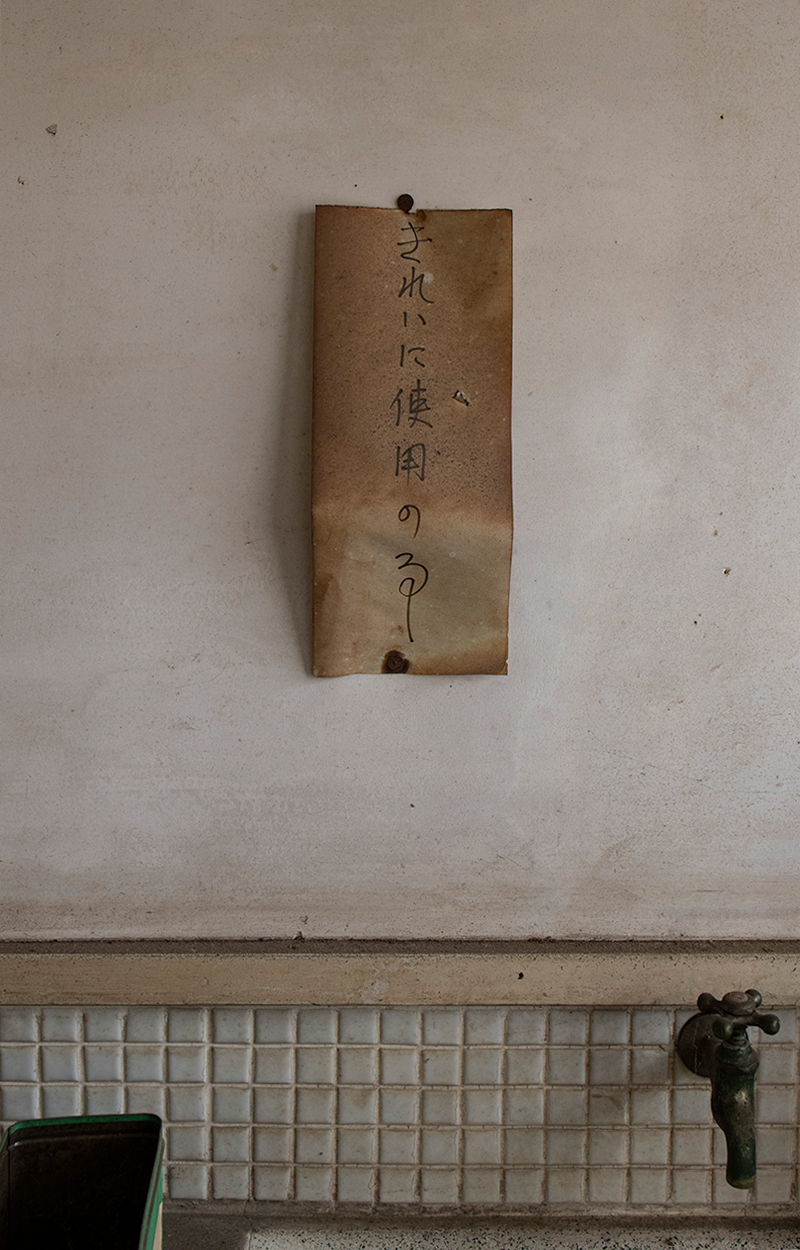 きれいに使用の事